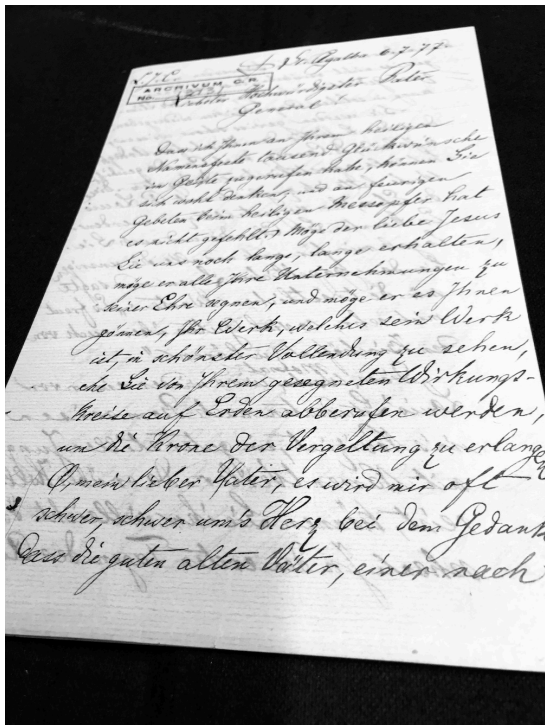 St. Agatha 6-7-77.
ARCHIVUM C.R.
No.
Hochwürdigster Pater
General!
Dass ich Ihnen an Ihrem heiligen
Namensfeste tausend Glückwünsche
im Geiste zugerufen habe, können Sie
sich wohl denken, und an feurigen
Gebeten beim heiligen Messopfer hat
es nicht gefehlt. Möge der liebe Jesus
Sie uns noch lange, lange erhalten,
möge er alle Ihre Unternehmungen zu
seiner Ehre segnen, und möge er es Ihnen
gönnen, Ihr Werk, welches sein Werk
ist, in schönster Vollendung zu sehen,
ehe Sie von Ihrem gesegneten Wirkungs-
kreise auf Erden abberufen werden,
um die Krone der Vergeltung zu erlangen
O, mein lieber Vater, es wird mir oft
schwer, schwer um's Herz bei dem Gedank
dass die guten alten Väter, einer nach